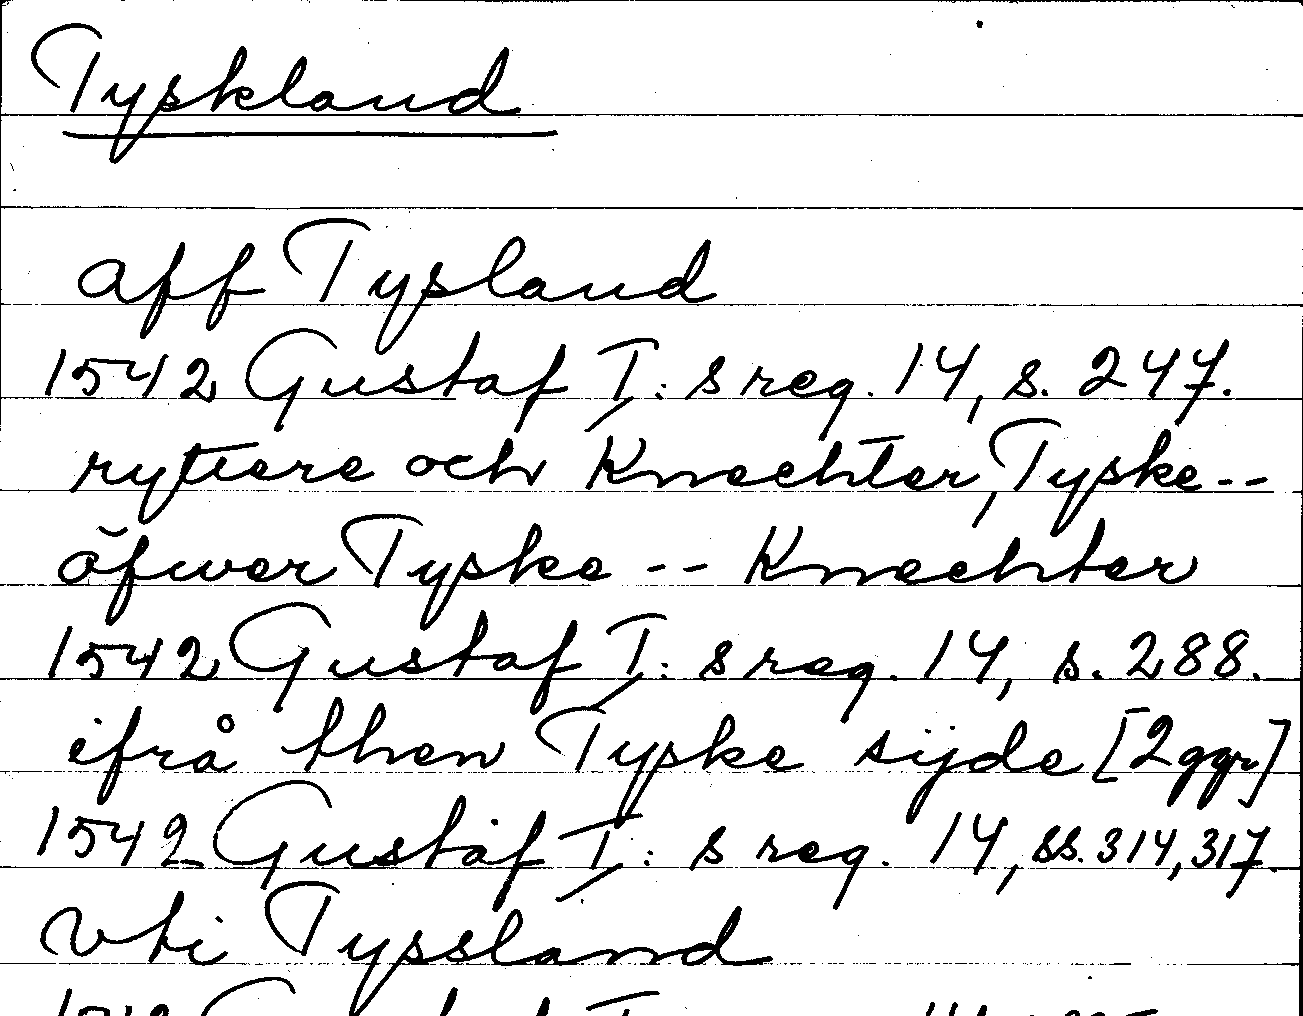 Tyskland
aff Tysland
1542 Gustaf I:s reg. 14, s. 247.
ryttere och Knechter, Tyske --
öfwer Tyske -- Knechter
1542 Gustaf I:s reg. 14, s. 288.
ifrå then Tyske sijde [2ggr]
1542 Gustaf I:s reg. 14, ss. 314, 317.
Vti Tyssland